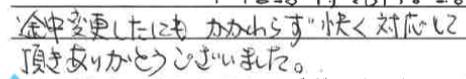 途中変更したにも かかわらず 快く対応して
頂きありがとうございました。